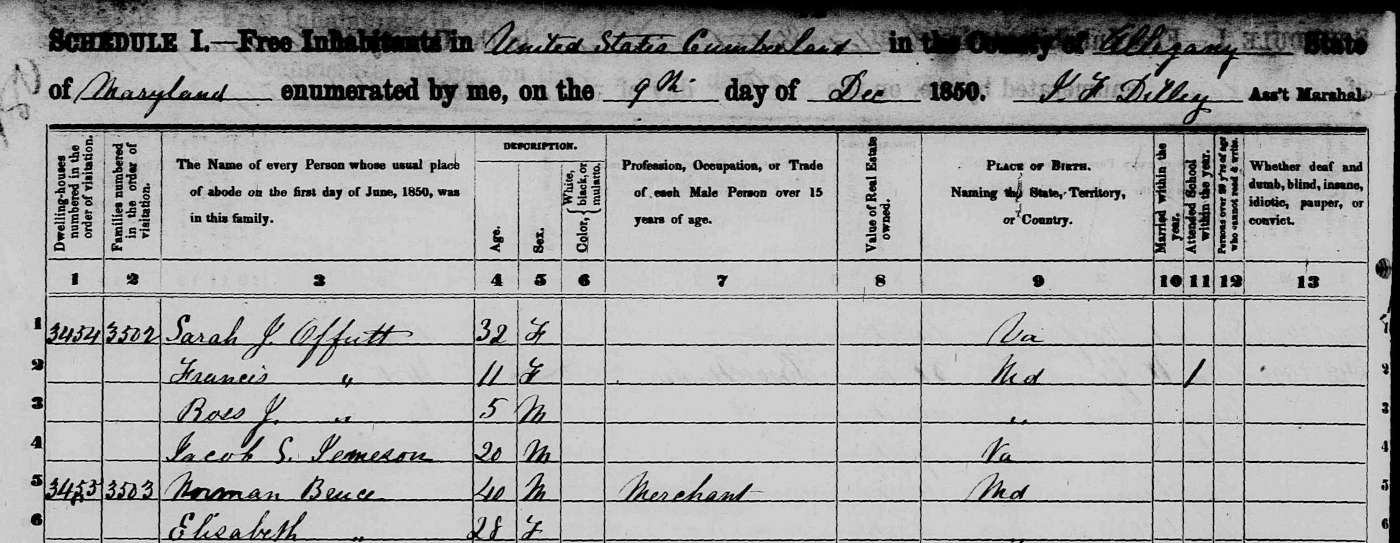 SCHEDULE I.—Free Inhabitants in United States Cumberland in the County of Allegany State
of Maryland enumerated by me, on the 9th day of Dec 1850. J. F Dilley Ass't Marshal.
Dwelling-houses numbered in the order of visitation.
Families numbered in the order of visitation.
The Name of every Person whose usual place
of abode on the first day of June, 1850, was
in this family.
DESCRIPTION.
Age.
Sex.
Color, { White, black, or mulatto.
Profession, Occupation, or Trade
of each Male Person over 15
years of age.
Value of Real Estate owned.
PLACE OF BIRTH.
Naming the State, Territory,
or Country.
Married within the year.
Attended School within the year.
Persons over 20 y'rs of age who cannot read & write.
Whether deaf and
dumb, blind, insane,
idiotic, pauper, or
convict.
1 2 3 4 5 6 7 8 9 10 11 12 13
1 3454 3502 Sarah J. Offutt 32 F Va 1
2 Francis " 11 F Md 1 2
3 Ross J. " 5 M " 3
4 Jacob S. Jemeson 20 M Va 4
5 3455 3503 Norman Bruce 40 M Merchant Md 5
6 Elisabeth " 28 F " 6